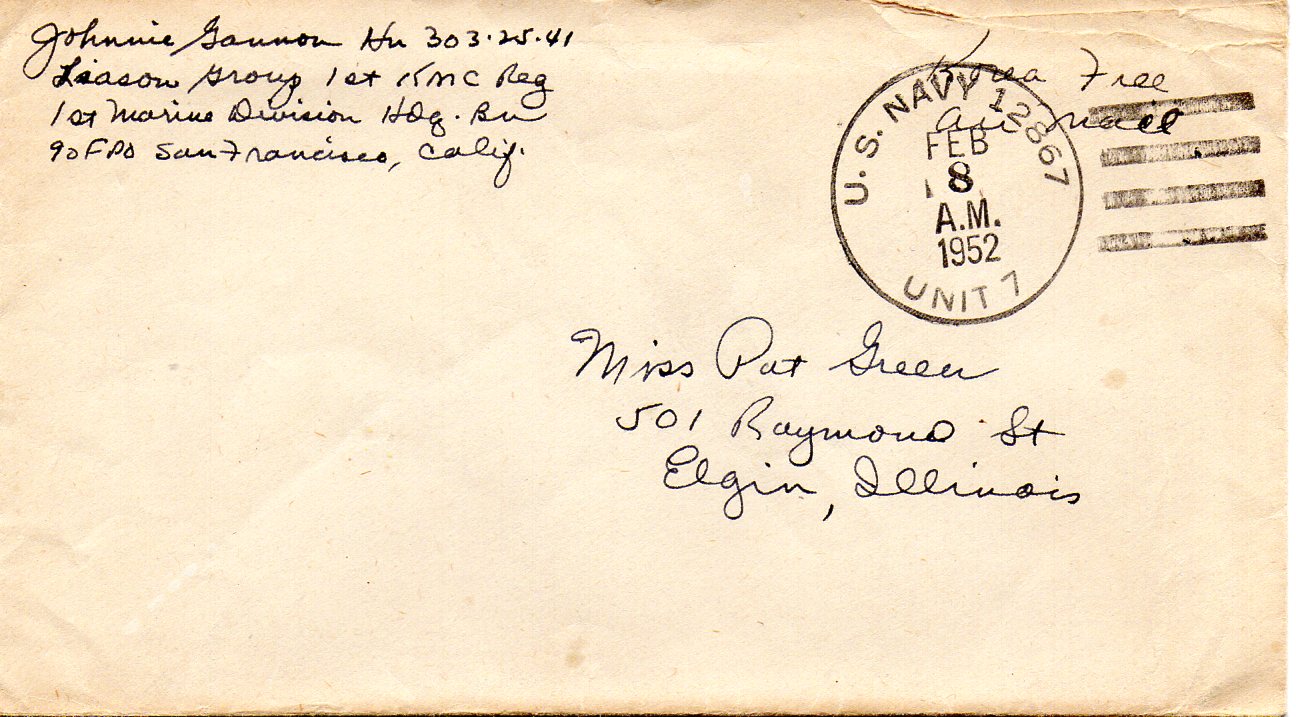 Johnnie Gannon Hn 303·25·41
Liason Group 1st KMC Reg
1st Marine Division Hdq. Bn
℅ FPO San Francisco, Calif.
Korea Free
Air Mail
U.S. NAVY 12867
FEB
8
A.M.
1952
UNIT 7
Miss Pat Green
501 Raymond St
Elgin, Illinois